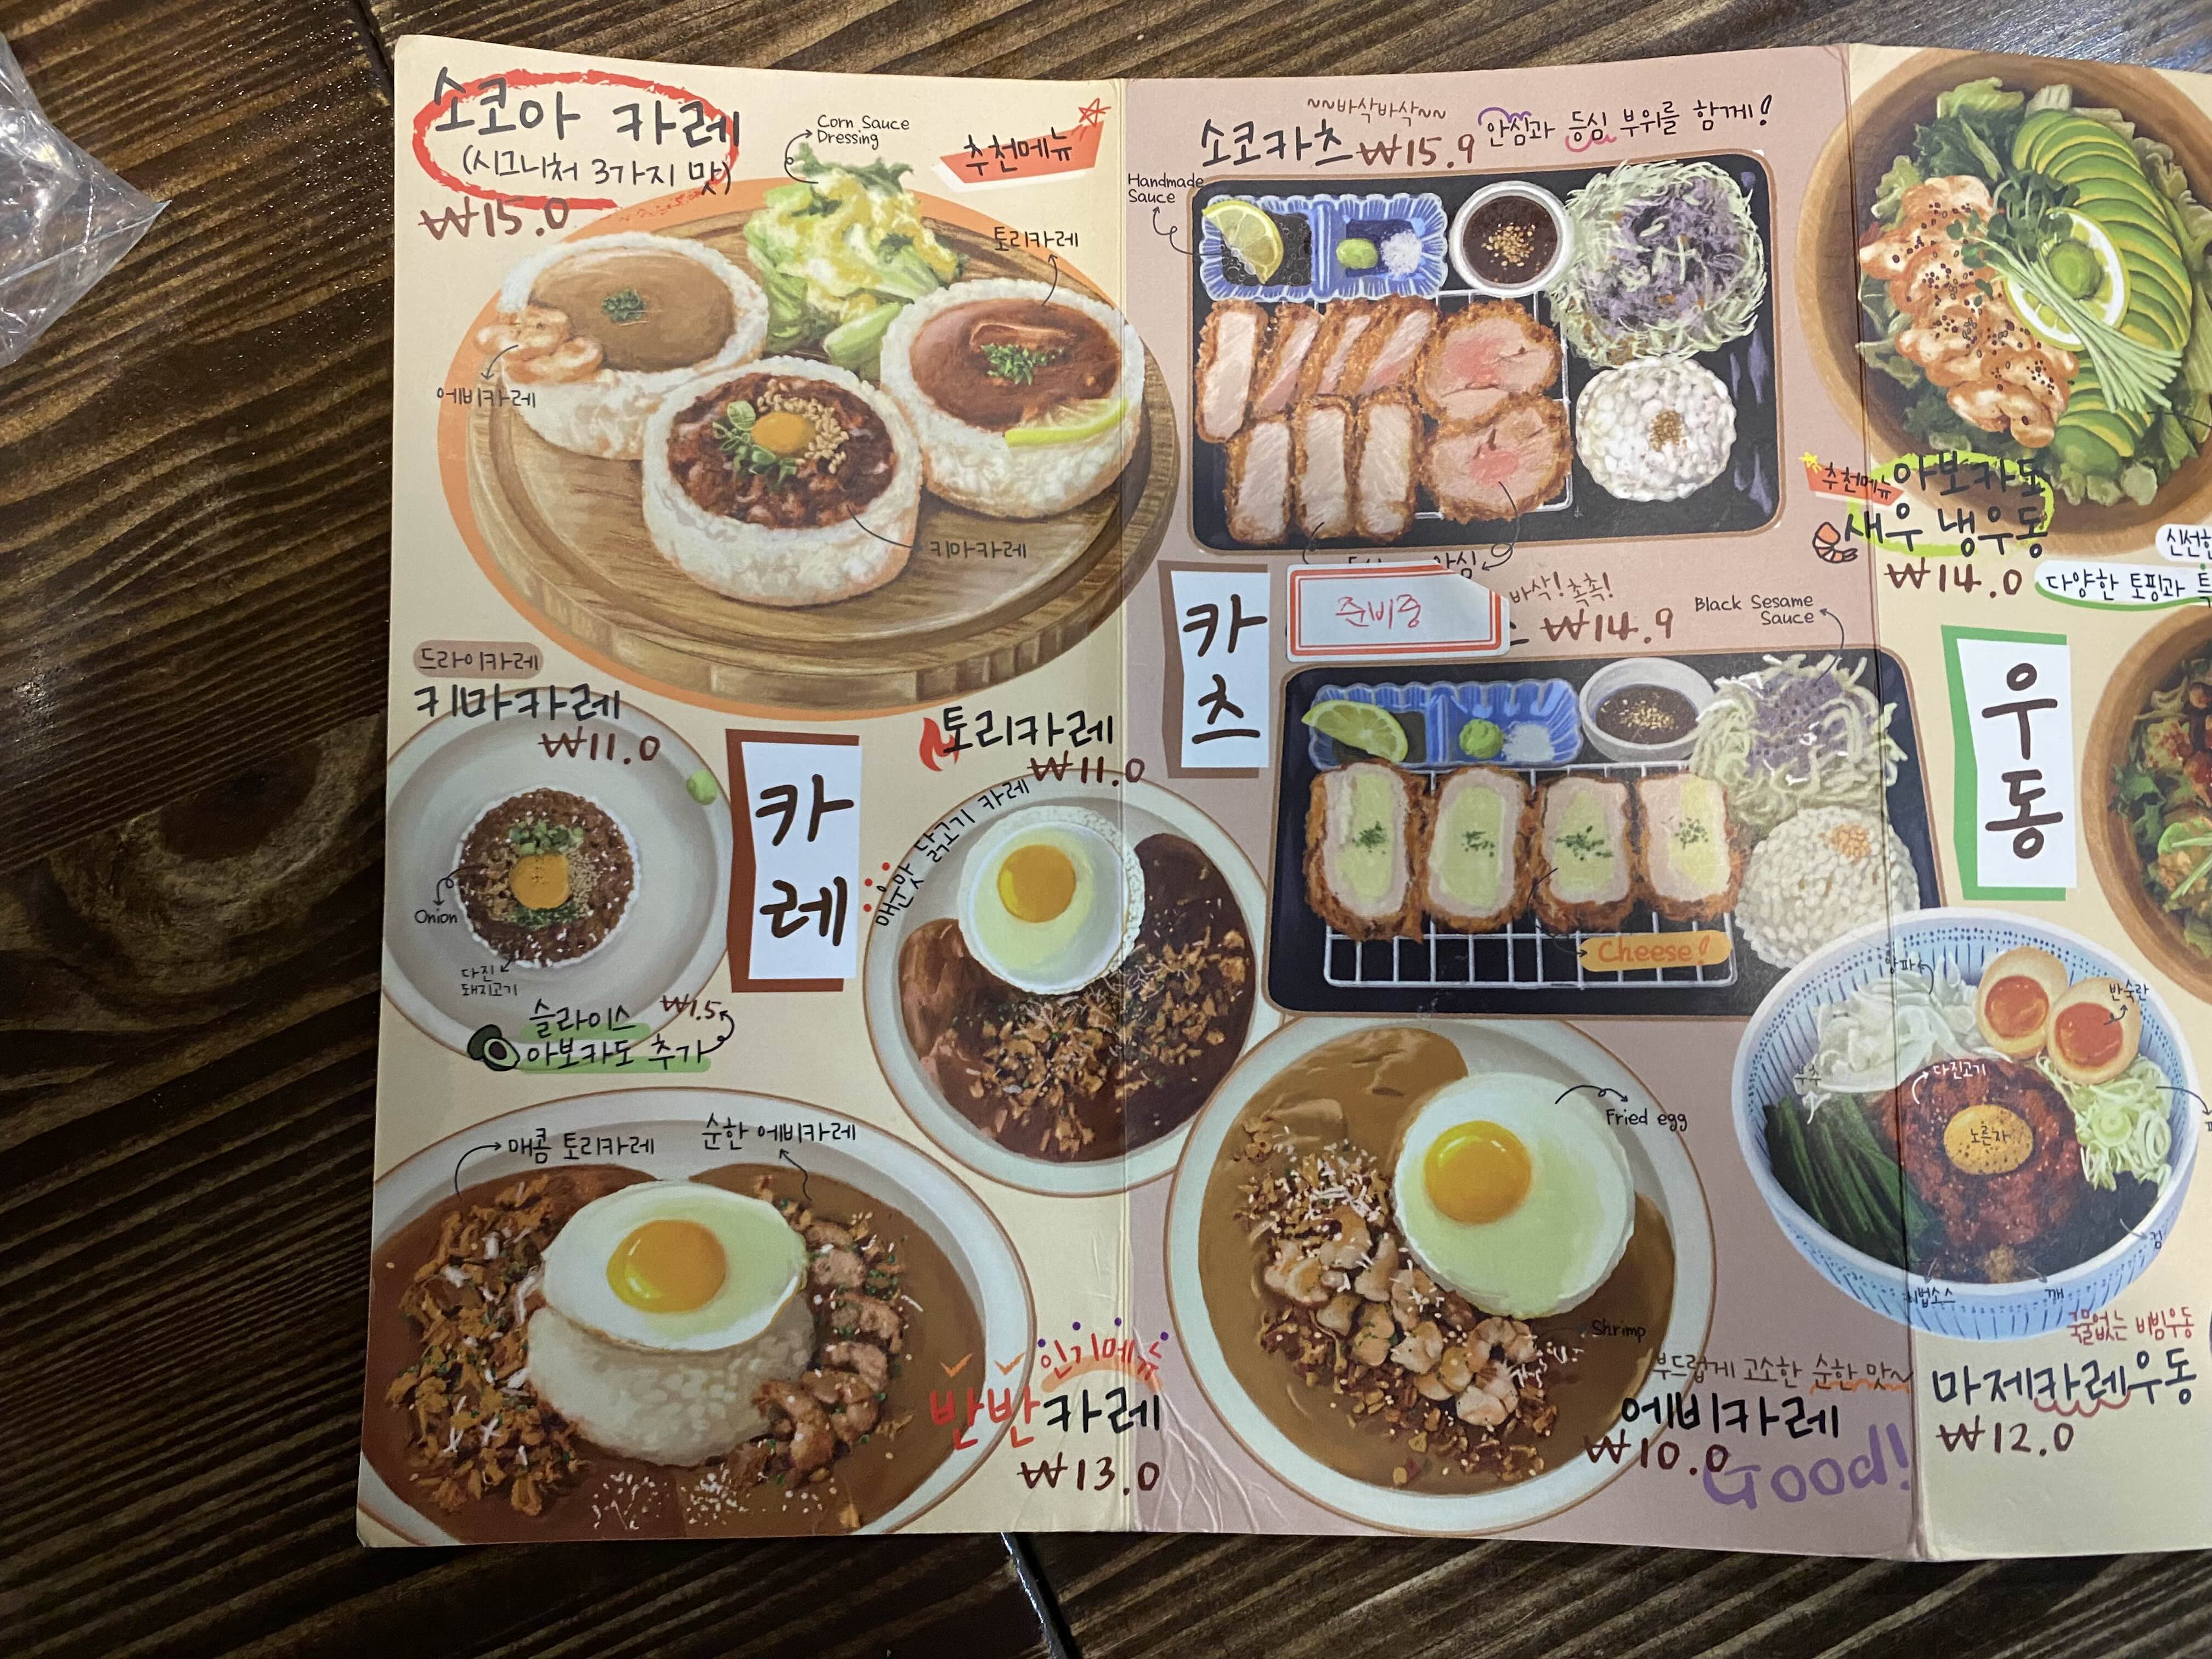 소코아 카레
(시그니처 3가지 맛)
₩15.0
Corn Sauce
Dressing
추천메뉴
토리카레
에비카레
키마카레
드라이카레
키마카레
₩11.0
Onion
다진
돼지고기
슬라이스 ₩1.5
아보카도 추가
카레
토리카레
₩11.0
매운맛 닭고기 카레
매콤 토리카레
순한 에비카레
인기메뉴
반반카레
₩13.0
~~바삭바삭~~
소코카츠 ₩15.9
안심과 등심 부위를 함께!
Handmade
Sauce
안심
카츠
준비중
바삭! 촉촉!
₩14.9
Black Sesame
Sauce
Cheese!
Fried egg
Shrimp
부드럽게 고소한 순한 맛~
에비카레
₩10.0
Good!
추천메뉴
아보카도
새우 냉우동
₩14.0
신선한
다양한 토핑과
우동
양파
반숙란
부추
다진고기
노른자
김
비법소스
깨
국물없는 비빔우동
마제카레우동
₩12.0